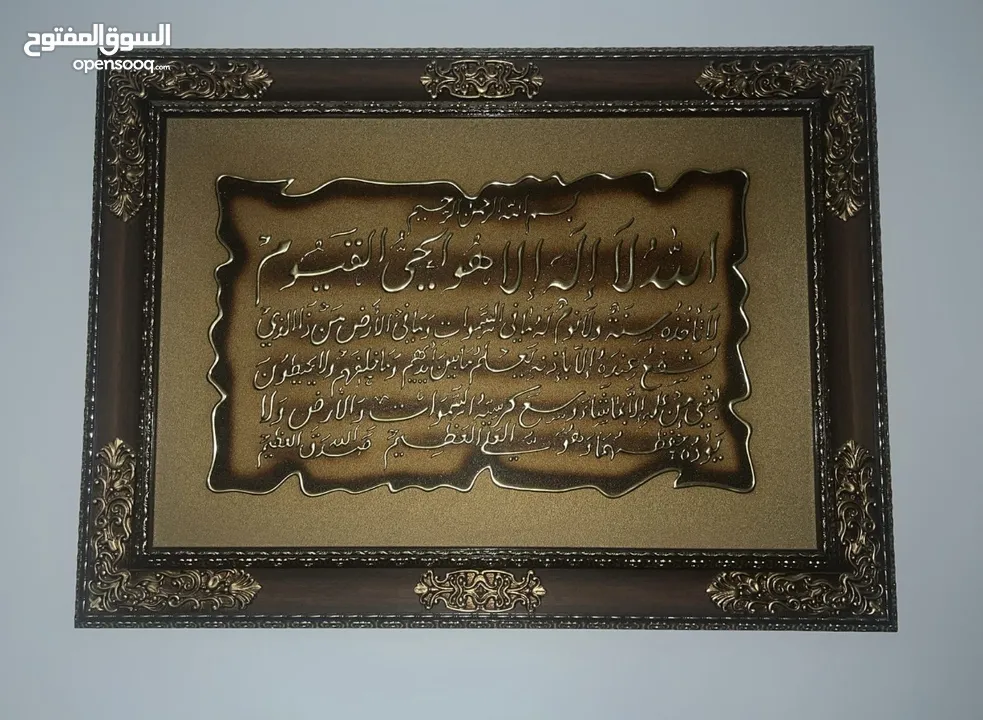 السوق المفتوح
opensooq.com
بسم الله الرحمن الرحيم
الله لا إله إلا هو الحي القيوم
لا تأخذه سنة ولا نوم له ما في السموات وما في الأرض من ذا الذي
يشفع عنده إلا بإذنه يعلم ما بين أيديهم وما خلفهم ولا يحيطون
بشيء من علمه إلا بما شاء وسع كرسيه السموات والأرض ولا
يؤده حفظهما وهو العلي العظيم صدق الله العظيم